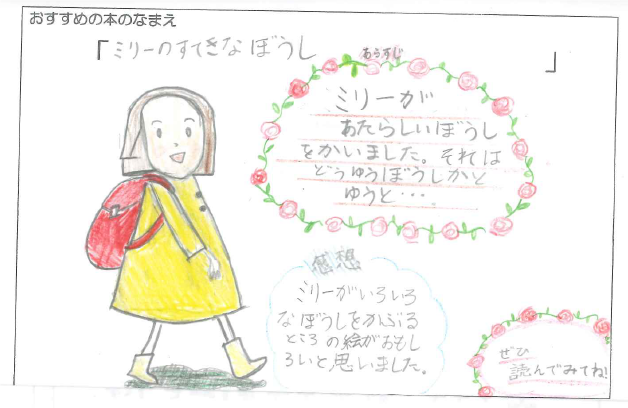 おすすめの本のなまえ
「ミリーのすてきなぼうし」
あらすじ
ミリーが
あたらしいぼうし
をかいました。それは
どうゆうぼうしかと
ゆうと・・・。
感想
ミリーがいろいろ
なぼうしをかぶる
ところの絵がおもし
ろいと思いました。
ぜひ
読んでみてね!